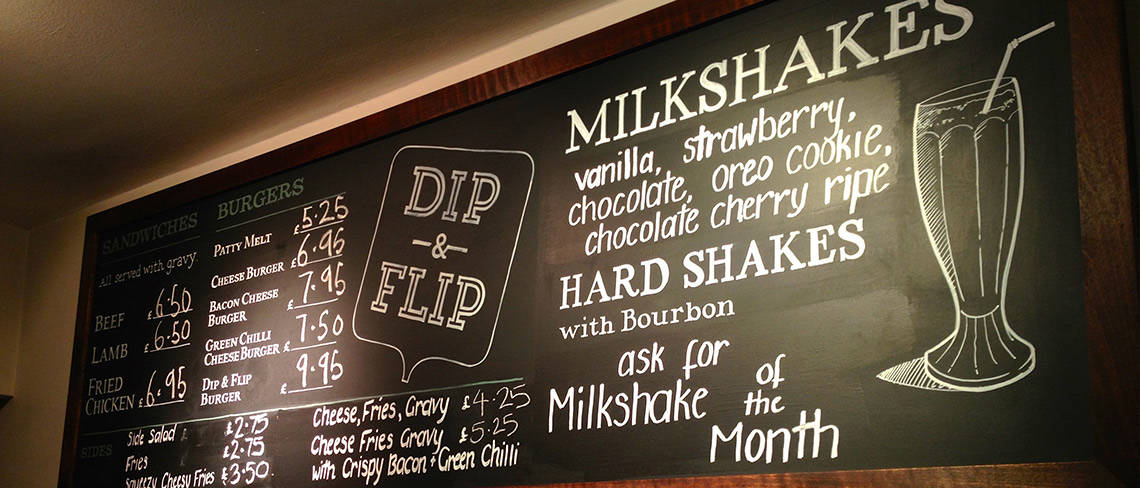 SANDWICHES
All served with gravy.
BEEF £6.50
LAMB £6.50
FRIED
CHICKEN £6.95
BURGERS
PATTY MELT £5.25
CHEESE BURGER £6.95
BACON CHEESE
BURGER £7.95
GREEN CHILLI
CHEESE BURGER £7.50
DIP & FLIP
BURGER £9.95
DIP
-&-
FLIP
SIDES
Side Salad £2.75
Fries £2.75
Squeezy Cheesy Fries £3.50
Cheese, Fries, Gravy £4.25
Cheese Fries Gravy £5.25
with Crispy Bacon + Green Chilli
MILKSHAKES
vanilla, strawberry,
chocolate, oreo cookie,
chocolate cherry ripe
HARD SHAKES
with Bourbon
ask for
Milkshake of
the
Month